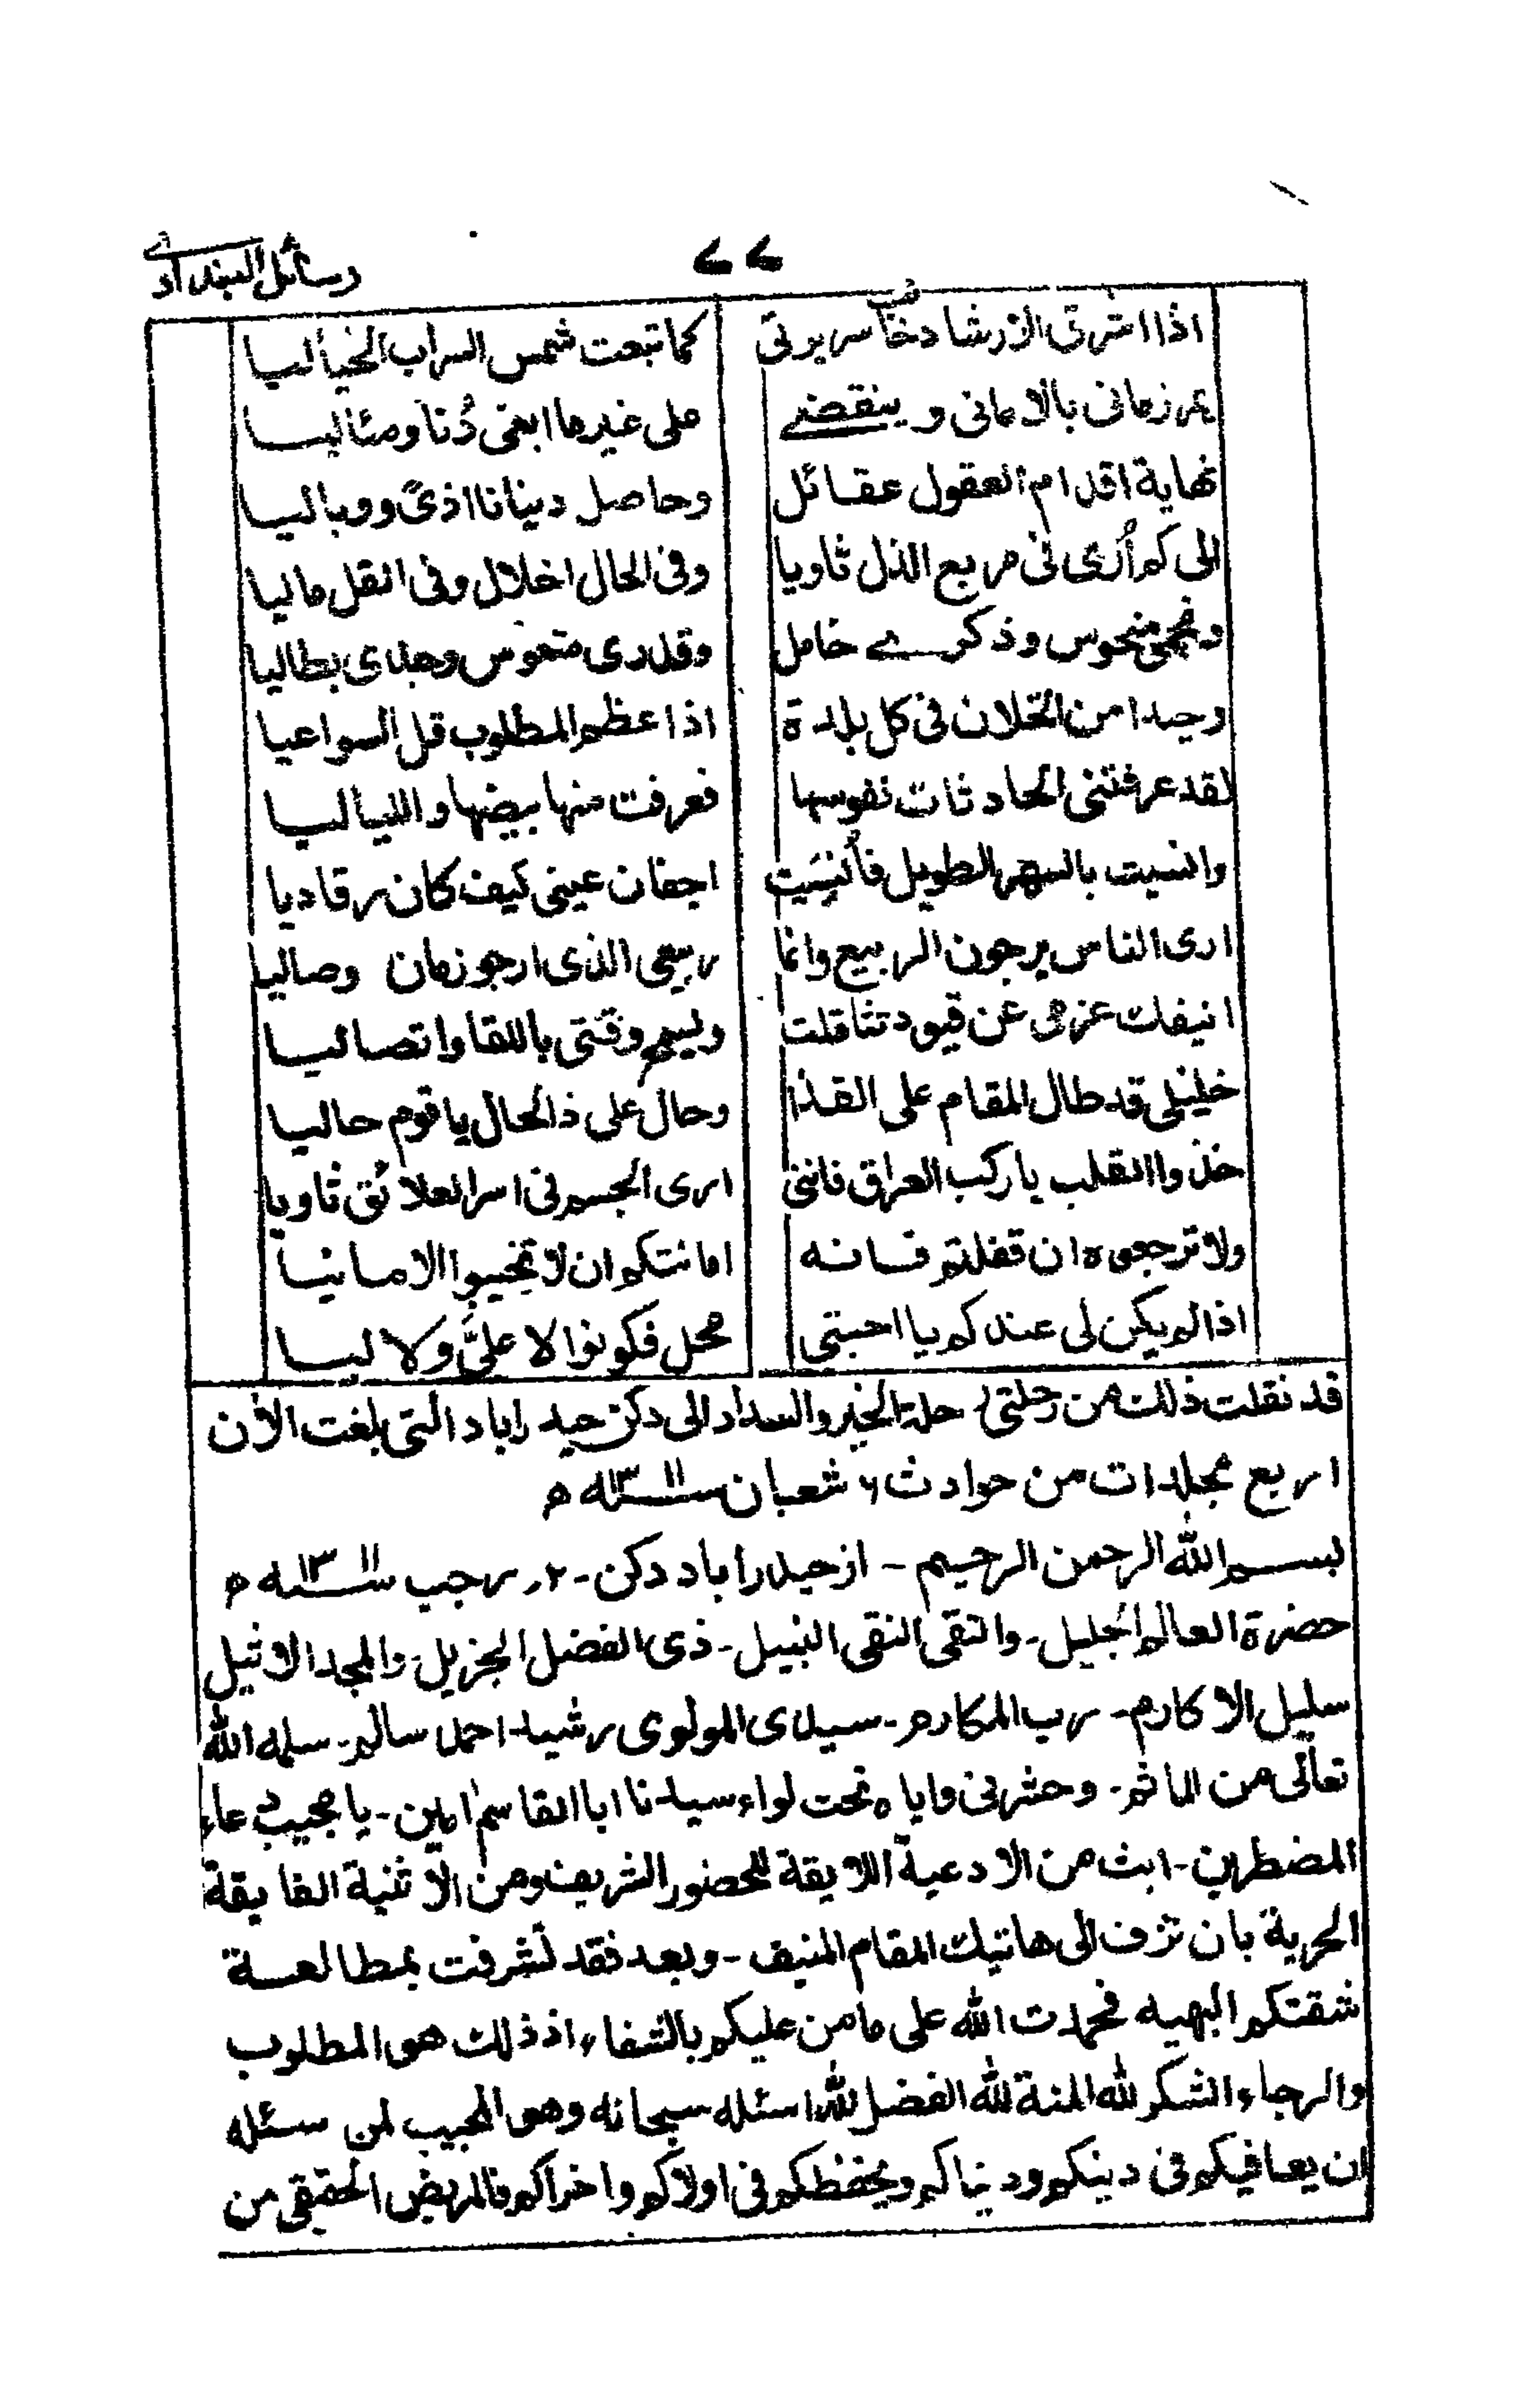 رسائل البغدادے
٧٧
اذا اشرق الارشاد خابت سريرتى كما تبعت شمس السراب الخياليا
يمر زمانى بالامانى وينقضے على غير ما ابغى دُنا ومثاليا
نهاية اقدام العقول عقائل وحاصل دينانا اذىً ووباليا
الى كم أرى فى مربع الذل ثاويا وفى الحال اخلال وفى القل ماليا
ونجمى منحوس وذكرے خامل وقدرى متعوس وجدى بطاليا
وحيدا من الخلان فى كل بلدة اذا عظم المطلوب قل السواعيا
لقد عرفتنى الحادثات نفوسها فعرفت منها بيضها والليا ليا
وانسيت بالسهر الطويل فأنسَيت اجفان عينى كيف كان رقاديا
ارى الناس يرجون الربيع وانما ربيعى الذى ارجو زمان وصاليا
انيفك عزمى عن قيود تثاقلت ويسم وقتى باللقا واتصاليا
خليلى قد طال المقام على القذا وحال على ذالحال يا قوم حاليا
خذوا القلب يا ركب العراق فاننى ارى الجسم فى اسر العلائق ثاويا
ولا ترجعوه ان قفلتم فانه امانتكم ان لا تخيبوا الامانيا
اذا لم يكن لى عندكم يا احبتى محل فكونوا لا علىَّ ولا ليا
قد نقلت ذلك من رحلتى رحلة الخير والسداد الى دكن حيدراباد التى بلغت الأن
اربع مجلدات من حوادث ٦ شعبان سنه ١٣١١ ه
بسم الله الرحمن الرحيم - از حيدراباد دكن - ٢ر رجب سنه ١٣١١ ه
حضرة العالم الجليل - والتقى النقى النبيل - ذى الفضل الجزيل - والمجد الاثيل
سليل الاكارم - رب المكارم - سيدى المولوى رشيد احمد سالم - سلمه الله
تعالى من الماثم - وحشرنى واياه تحت لواء سيدنا ابا القاسم امين - يا مجيب دعاء
المضطرين - ابث من الادعية اللايقة للحضور الشريف ومن الأثنية الفايقة
الحرية بان تزف الى هاتيك المقام المنيف - وبعد فقد تشرفت بمطالعة
شقتكم البهيه فحمدت الله على ما من عليكم بالشفاء اذ ذلك هو المطلوب
والرجاء والشكر لله المنة لله الفضل لله اسئله سبحانه وهو المجيب لمن سئله
ان يعافيكم فى دينكم ودنياكم ويحفظكم فى اولاكم واخراكم فالمريض الحقيقى من